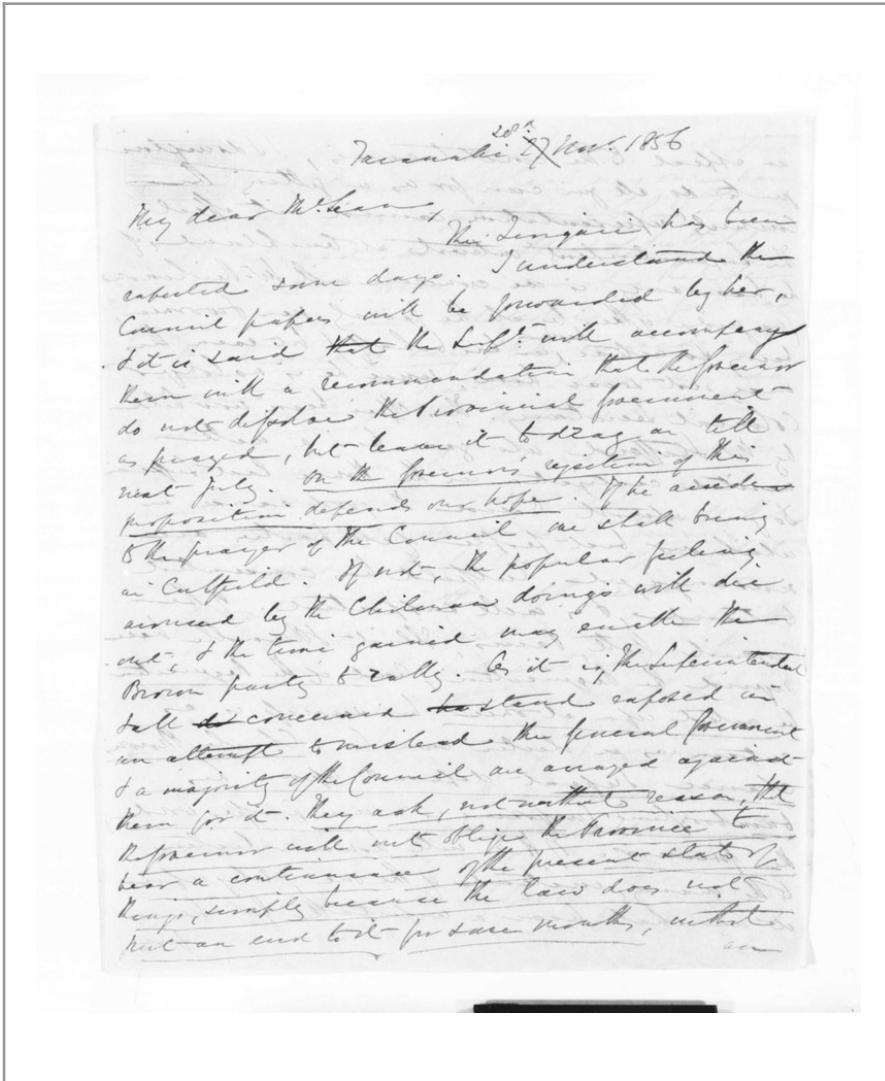 28th
Taranaki 27 Nov. 1856
My dear McLean,
The Zingari has been
expected some days. I understand the
Council papers will be forwarded by her,
& it is said that the Supt. will accompany
them with a recommendation that the Governor
do not dissolve the Provincial Government
as prayed, but leave it to drag on till
next July. On the Governor's rejection of this
proposition depends our hope. If he accedes
to the prayer of the Council we shall bring
in Cutfield. If not, the popular feeling
aroused by the Chilman doings will die
out, & the time gained may enable the
Brown party to rally. As it is, the Superintendent
& all concerned stand exposed in
an attempt to mislead the General Government
& a majority of the Council are arrayed against
them for it. They ask, not without reason, that
the Governor will not oblige the Province to
bear a continuance of the present state of
things, simply because the law does not
put an end to it for some months, without
an